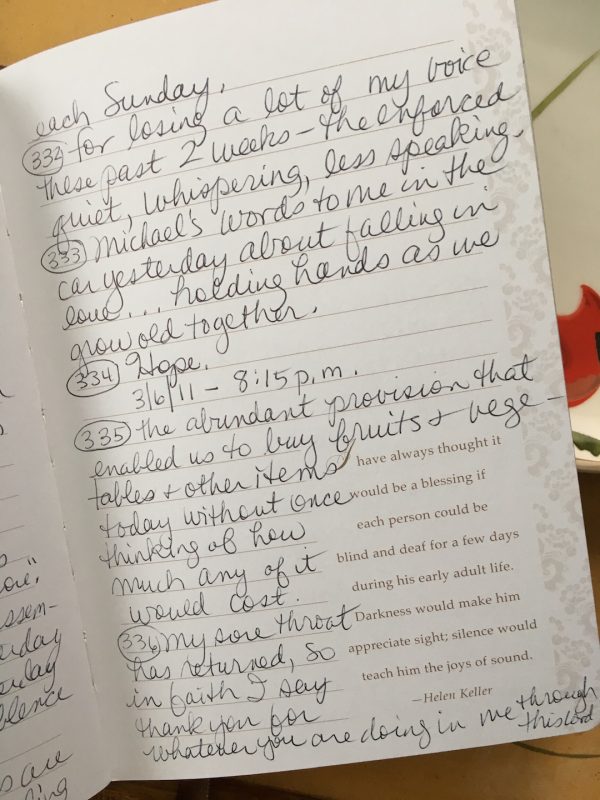 each Sunday.
332 for losing a lot of my voice
these past 2 weeks – the enforced
quiet, whispering, less speaking.
333 Michael's words to me in the
car yesterday about falling in
love... holding hands as we
grow old together.
334 Hope.
3/6/11 – 8:15 p.m.
335 the abundant provision that
enabled us to buy fruits + vege-
tables + other items
today without once
thinking of how
much any of it
would cost.
336 My sore throat
has returned, so
in faith I say
thank you for
whatever you are doing in me through
this Lord
have always thought it
would be a blessing if
each person could be
blind and deaf for a few days
during his early adult life.
Darkness would make him
appreciate sight; silence would
teach him the joys of sound.
—Helen Keller